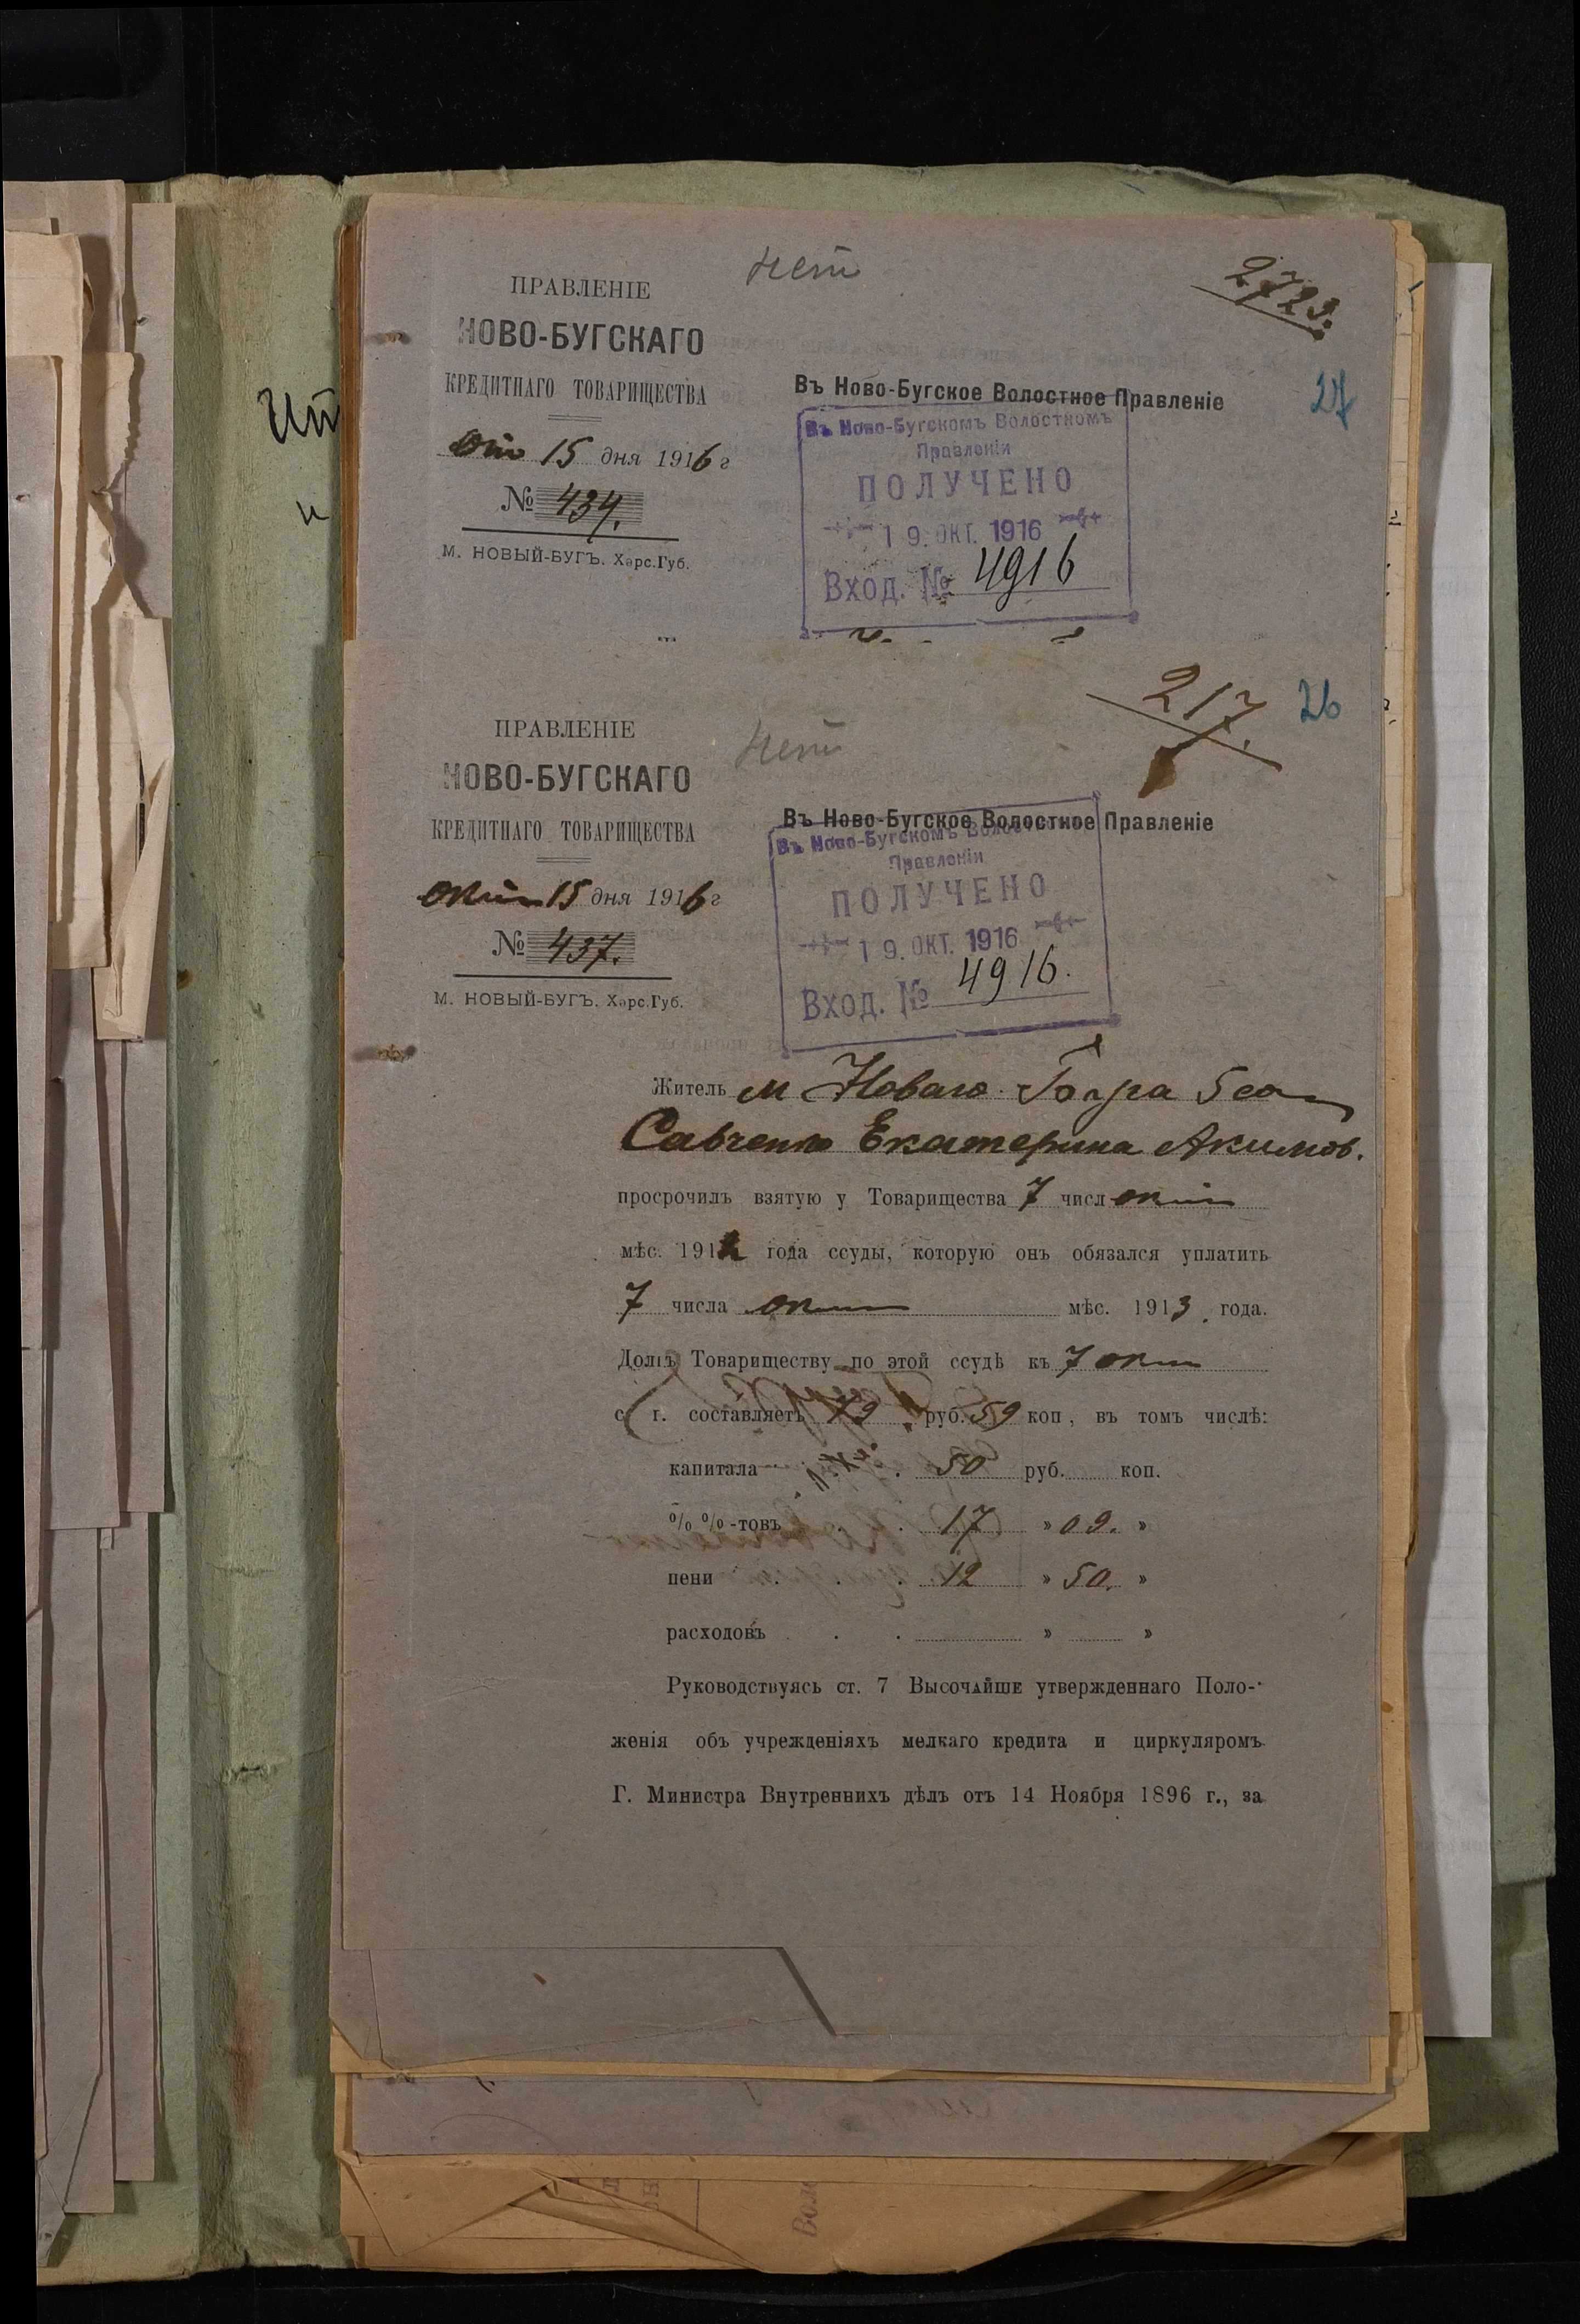 нет
2723.
ПРАВЛЕНІЕ
НОВО-БУГСКАГО
КРЕДИТНАГО ТОВАРИЩЕСТВА
Окт 15 дня 1916 г
№ 434.
М. НОВЫЙ-БУГЪ. Херс.Губ.
Въ Ново-Бугское Волостное Правленіе
27
Въ Ново-Бугскомъ Волостномъ
Правленіи
ПОЛУЧЕНО
19. ОКТ. 1916
Вход. № 4916
217.
26
нет
ПРАВЛЕНІЕ
НОВО-БУГСКАГО
КРЕДИТНАГО ТОВАРИЩЕСТВА
Окт 15 дня 1916 г
№ 437.
М. НОВЫЙ-БУГЪ. Херс.Губ.
Въ Ново-Бугское Волостное Правленіе
Въ Ново-Бугскомъ Волостномъ
Правленіи
ПОЛУЧЕНО
19. ОКТ. 1916
Вход. № 4916.
Житель м Новаго Буга 5
Савченко Екатерина Акимов.
просрочилъ взятую у Товарищества 7 числ окт
мѣс. 1912 года ссуды, которую онъ обязался уплатить
7 числа окт мѣс. 1913 года.
Долгъ Товариществу по этой ссудѣ къ 7 окт
с. г. составляетъ 79 руб. 59 коп, въ томъ числѣ:
капитала . . 50 руб. коп.
% %-товъ . . 17 » 09. »
пени . . . 12 » 50. »
расходовъ . . » »
Руководствуясь ст. 7 Высочайше утвержденнаго Поло-
женія объ учрежденіяхъ мелкаго кредита и циркуляромъ
Г. Министра Внутреннихъ дѣлъ отъ 14 Ноября 1896 г., за